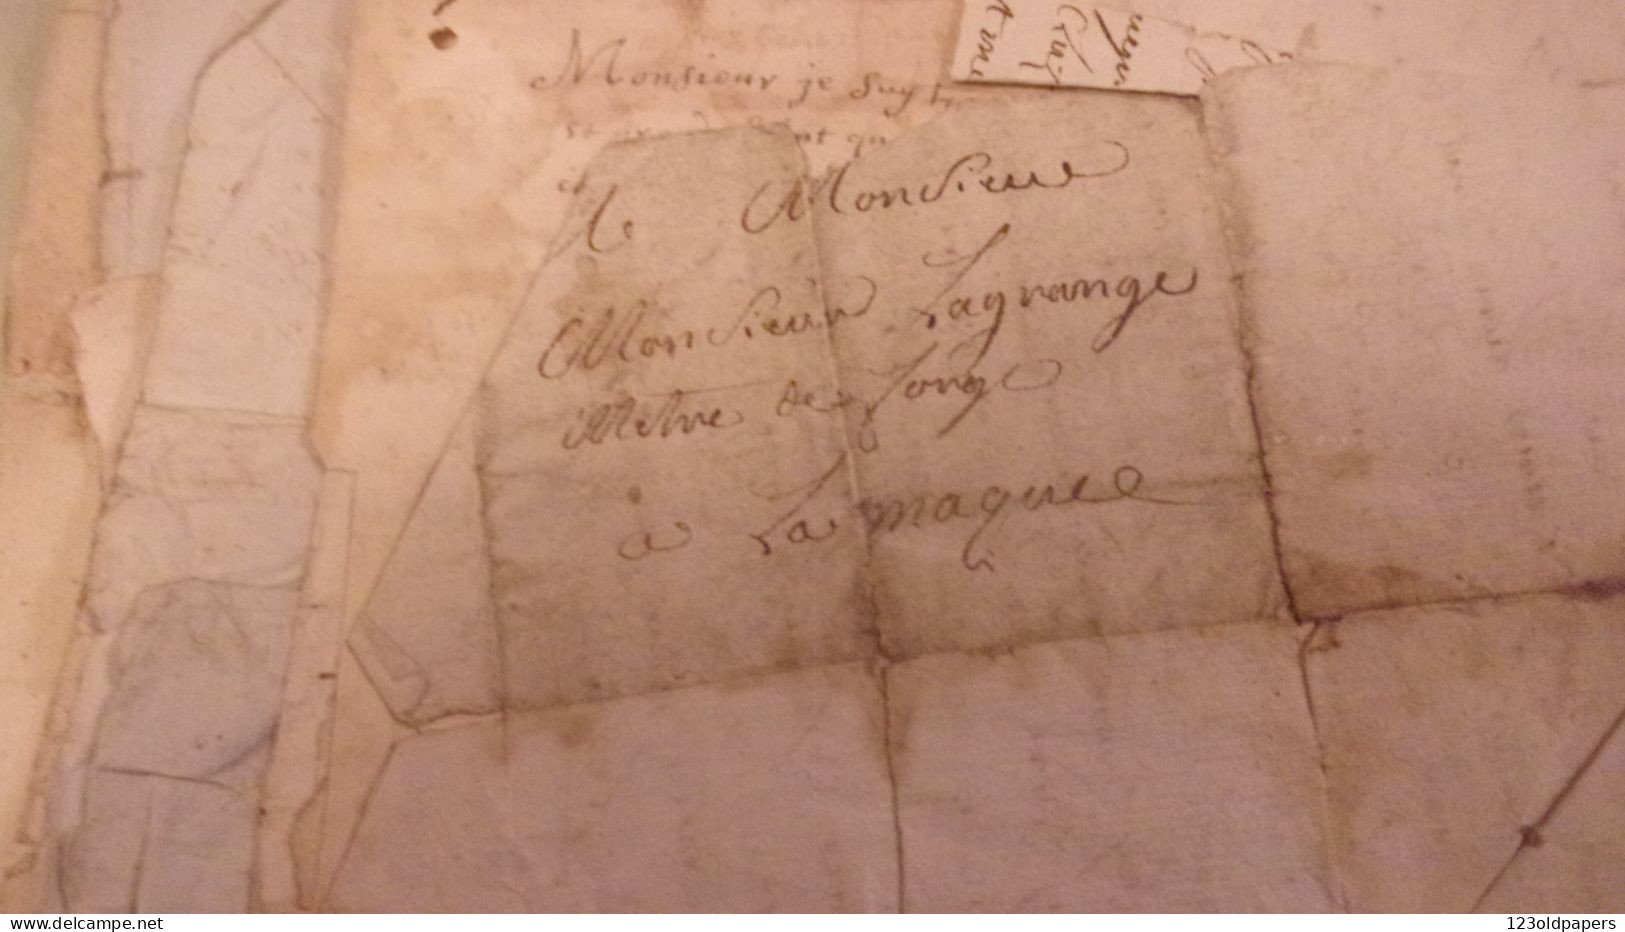 Monsieur je suy
nt qu
A Monsieur
Monsieur Lagrange
Metre de forge
à La maque
delcampe.net
123oldpapers